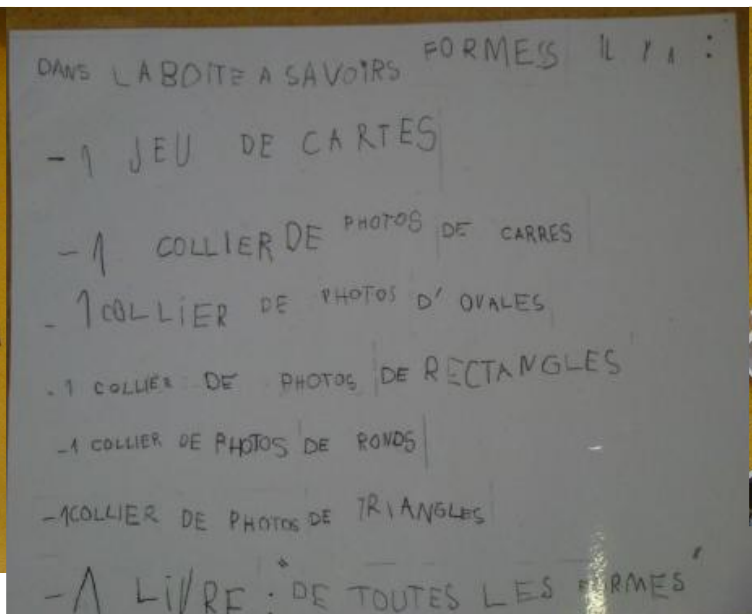 DANS LA BOITE A SAVOIRS FORMESS IL Y A :
- 1 JEU DE CARTES
- 1 COLLIER DE PHOTOS DE CARRES
- 1 COLLIER DE PHOTOS D' OVALES
- 1 COLLIER DE PHOTOS DE RECTANGLES
- 1 COLLIER DE PHOTOS DE RONDS
- 1 COLLIER DE PHOTOS DE TRIANGLES
- 1 LIVRE : " DE TOUTES LES FORMES "